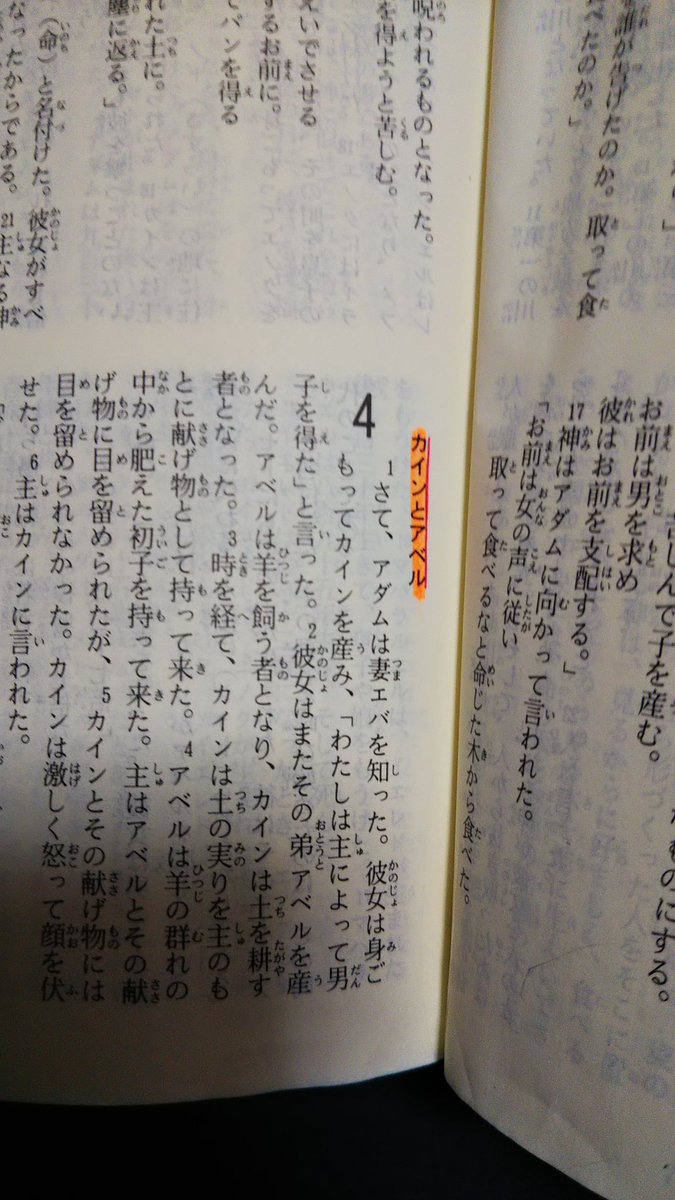 誰が告げたのか。取って食
べたのか。」
ものにする。
苦しんで子を産む。
お前は男を求め
彼はお前を支配する。」
17神はアダムに向かって言われた。
「お前は女の声に従い
取って食べるなと命じた木から食べた。
呪われるものとなった。
を得ようと苦しむ。
えいでさせる
するお前に。
てパンを得る
れた土に。
塵に返る。」
（命）と名付けた。彼女がすべ
なったからである。21主なる神
カインとアベル
4
1さて、アダムは妻エバを知った。彼女は身ご
もってカインを産み、「わたしは主によって男
子を得た」と言った。2彼女はまたその弟アベルを産
んだ。アベルは羊を飼う者となり、カインは土を耕す
者となった。3時を経て、カインは土の実りを主のも
とに献げ物として持って来た。4アベルは羊の群れの
中から肥えた初子を持って来た。主はアベルとその献
げ物に目を留められたが、5カインとその献げ物には
目を留められなかった。カインは激しく怒って顔を伏
せた。6主はカインに言われた。